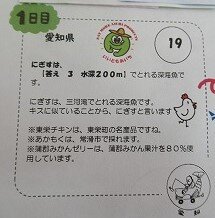 1日目
愛知県
いいともあいち
19
にぎすは、
[答え 3 水深200m]でとれる深海魚で
す。
にぎすは、三河湾でとれる深海魚です。
キスに似ていることから、にぎすと言います
※東栄チキンは、東栄町の名産品ですね。
※あかもくは、常滑市で採れます。
※蒲郡みかんゼリーは、蒲郡みかん果汁を80%使
用しています。